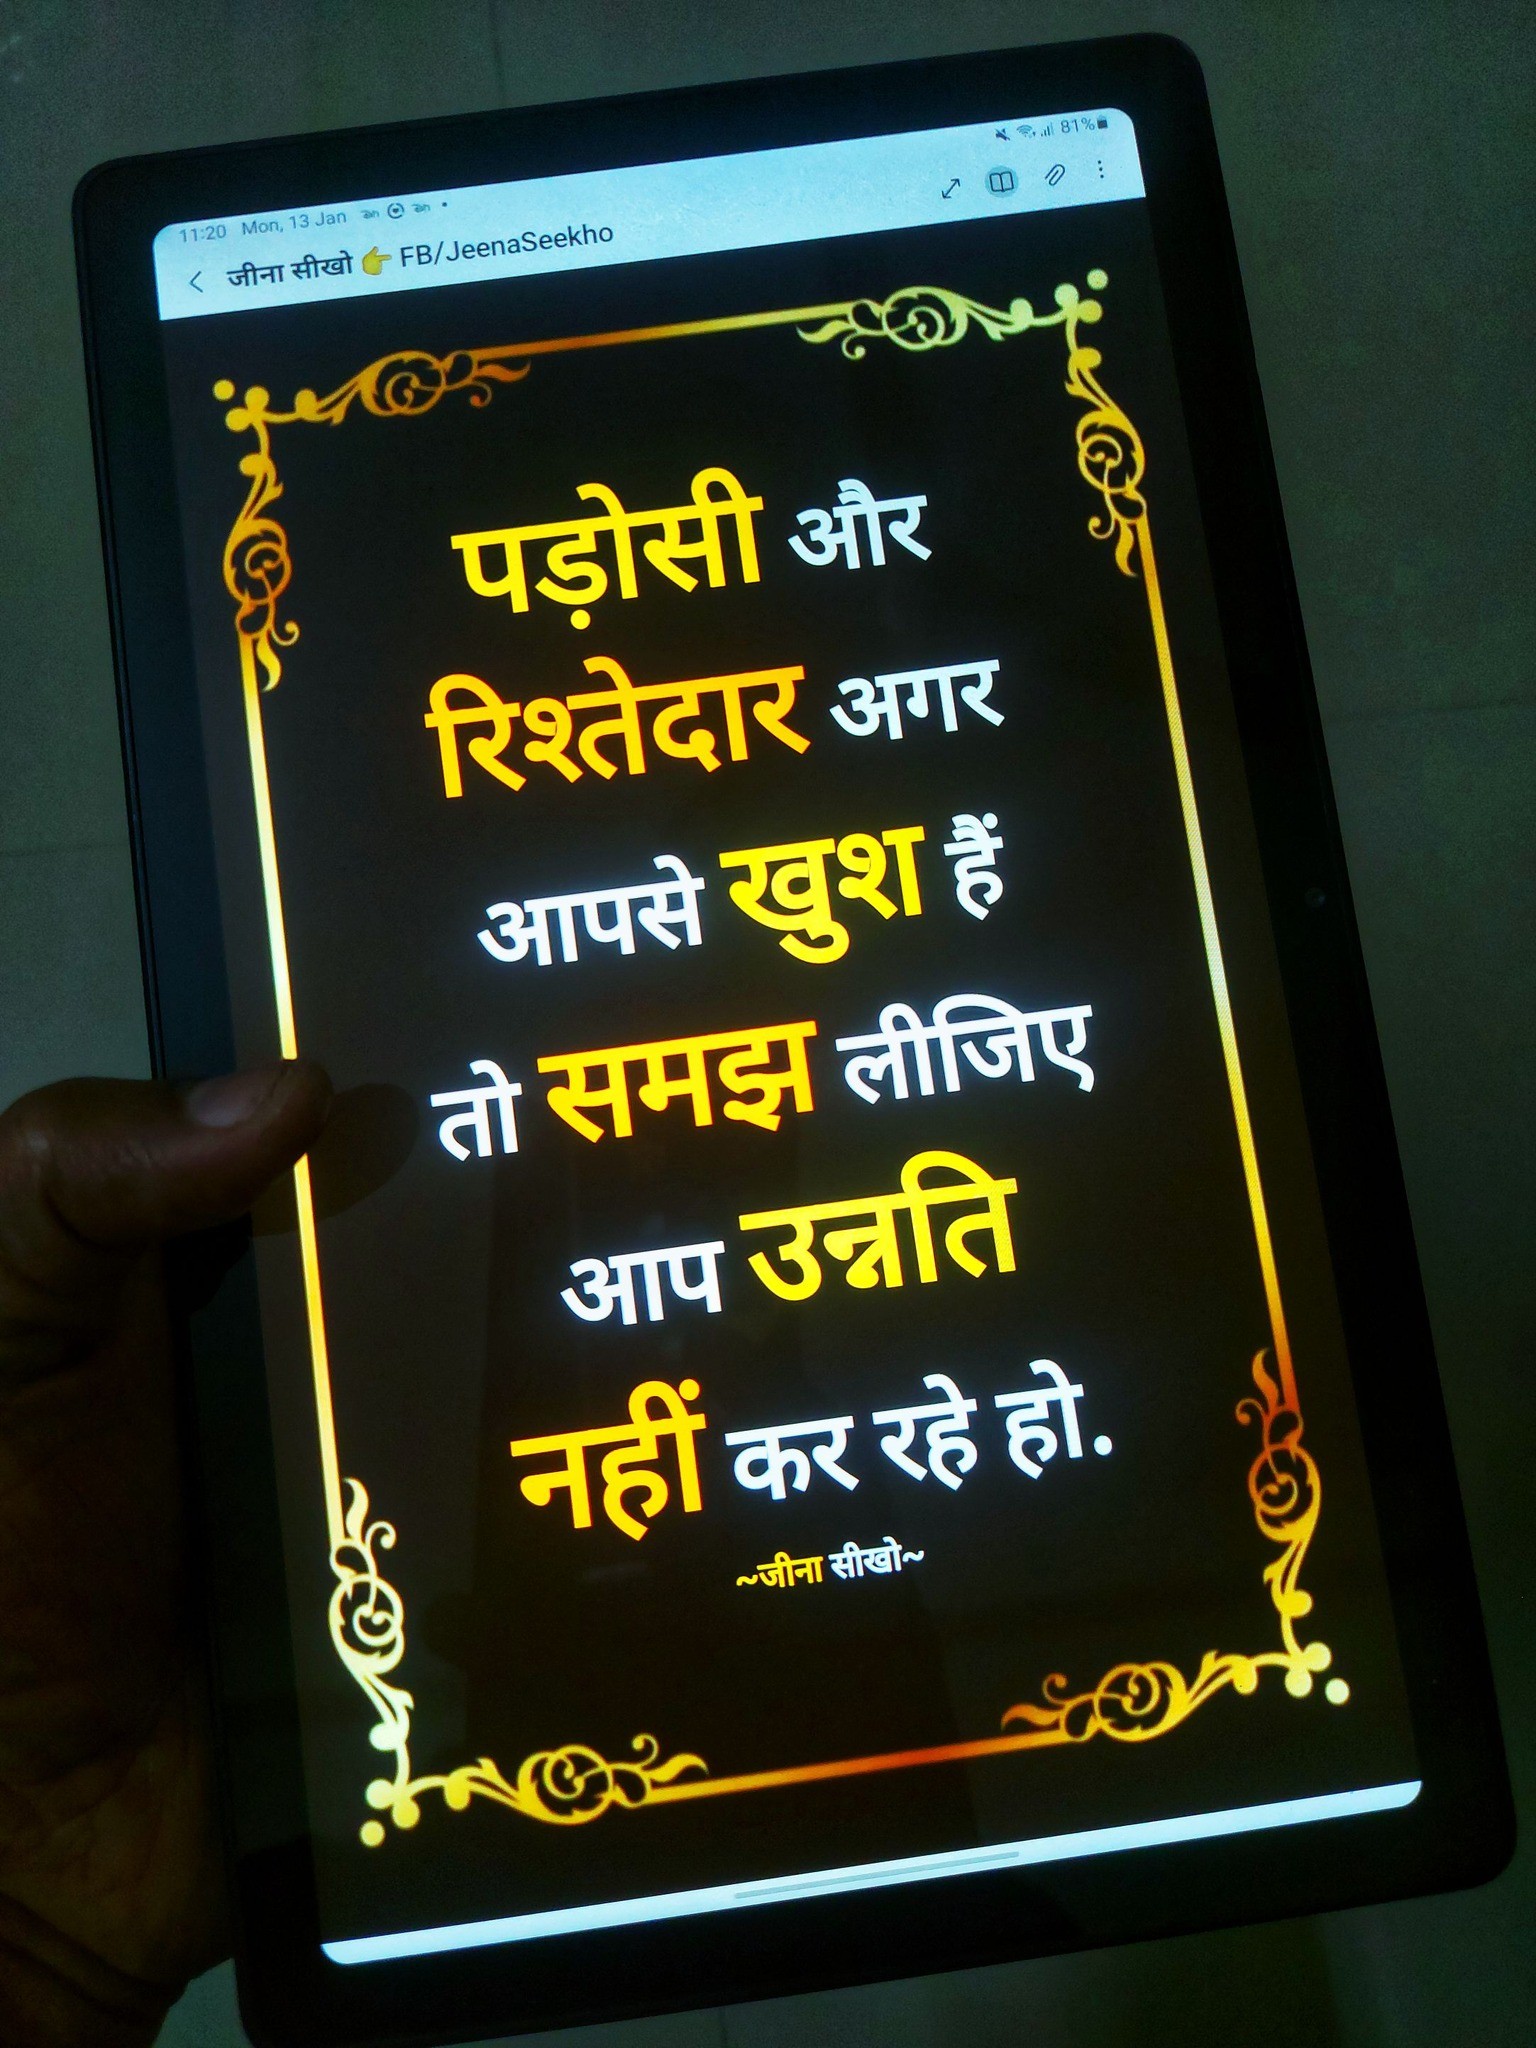 11:20 Mon, 13 Jan
81%
जीना सीखो 👉 FB/JeenaSeekho
पड़ोसी और
रिश्तेदार अगर
आपसे खुश हैं
तो समझ लीजिए
आप उन्नति
नहीं कर रहे हो.
~जीना सीखो~